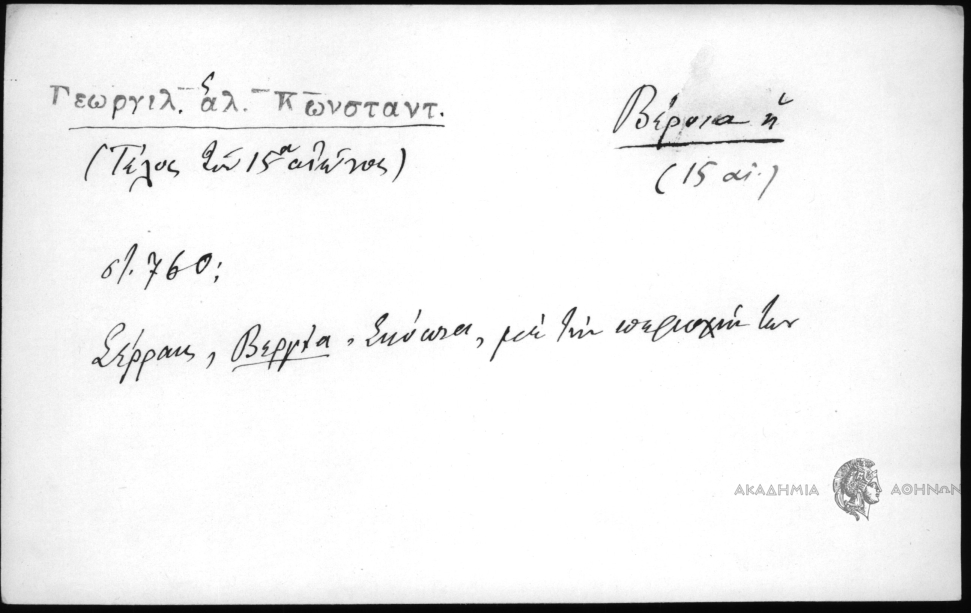 Γεωργιλ. ἁλ. Κωνσταντ.
(Τέλος τοῦ 15ου αἰῶνος)
Βέροια ἡ
(15 αἰ.)
στ. 760:
Σέρραις, Βεργιά, Σκόπια, μὲ τὴν περιοχήν των
ΑΚΑΔΗΜΙΑ ΑΘΗΝΩΝ